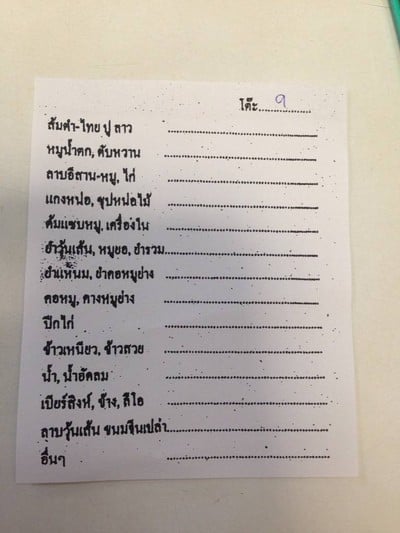 โต๊ะ..... 9 .....
ส้มตำ-ไทย ปู ลาว ..............................
หมูน้ำตก, ตับหวาน ..............................
ลาบอีสาน-หมู, ไก่ ..............................
แกงหน่อ, ซุปหน่อไม้ ..............................
ต้มแซบหมู, เครื่องใน ..............................
ยำวุ้นเส้น, หมูยอ, ยำรวม ..............................
ยำแหนม, ยำคอหมูย่าง ..............................
คอหมู, คางหมูย่าง ..............................
ปีกไก่ ..............................
ข้าวเหนียว, ข้าวสวย ..............................
น้ำ, น้ำอัดลม ..............................
เบียร์สิงห์, ช้าง, ลีโอ ..............................
ลาบวุ้นเส้น ขนมจีนเปล่า ..............................
อื่นๆ ..............................